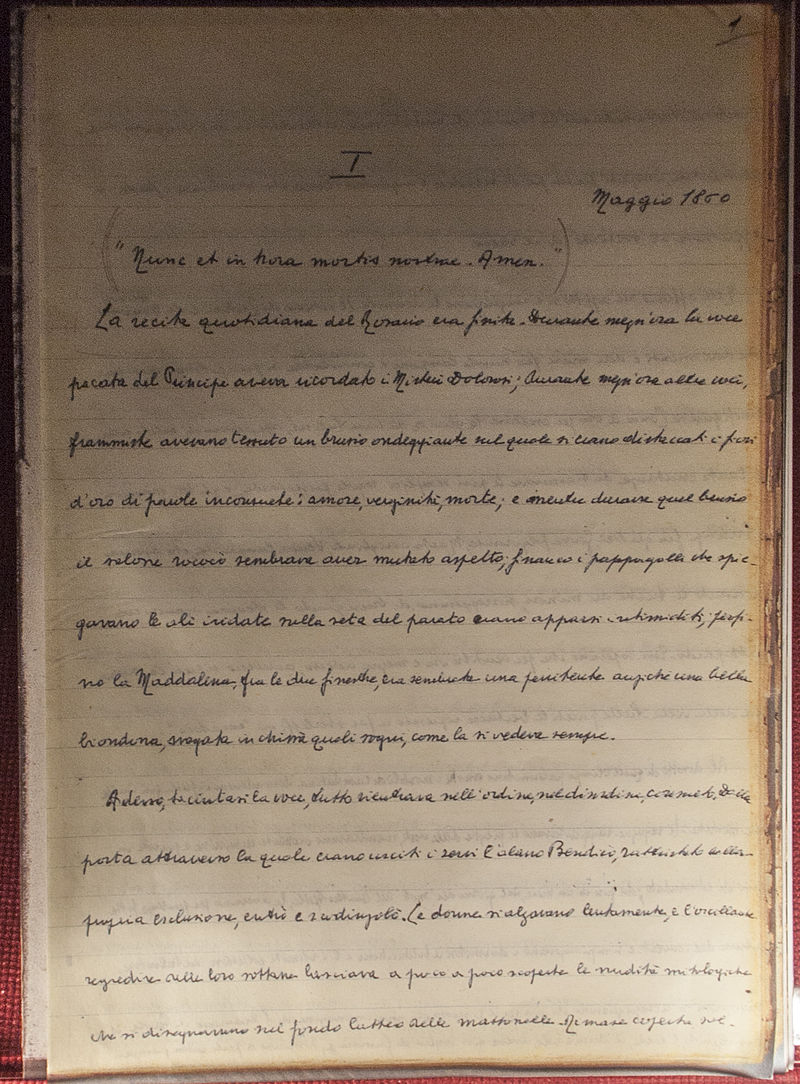 1
I
Maggio 1860
("Nunc et in hora mortis nostrae. Amen.")
La recita quotidiana del Rosario era finita. Durante mezz'ora la voce
pacata del Principe aveva ricordato i Misteri Dolorosi; durante mezz'ora altre voci,
frammiste avevano tessuto un brusio ondeggiante sul quale si erano distaccati i fiori
d'oro di parole inconsuete: amore, verginità, morte; e mentre durava quel brusio
il salone rococò sembrava aver mutato aspetto; financo i pappagalli che spie-
gavano le ali iridate sulla seta del parato erano apparsi intimiditi; perfi-
no la Maddalena, fra le due finestre, era sembrata una penitente anziché una bella
biondona, svagata in chissà quali sogni, come la si vedeva sempre.
Adesso, taciutasi la voce, tutto rientrava nell'ordine, nel disordine, consueto. Dalla
porta attraverso la quale erano usciti i servi l'alano Bendicò, rattristato dalla
propria esclusione, entrò e scodinzolò. Le donne si alzavano lentamente, e l'oscillante
regredire delle loro sottane lasciava a poco a poco scoperte le nudità mitologiche
che si disegnavano sul fondo latteo delle mattonelle. Rimase coperta sol-